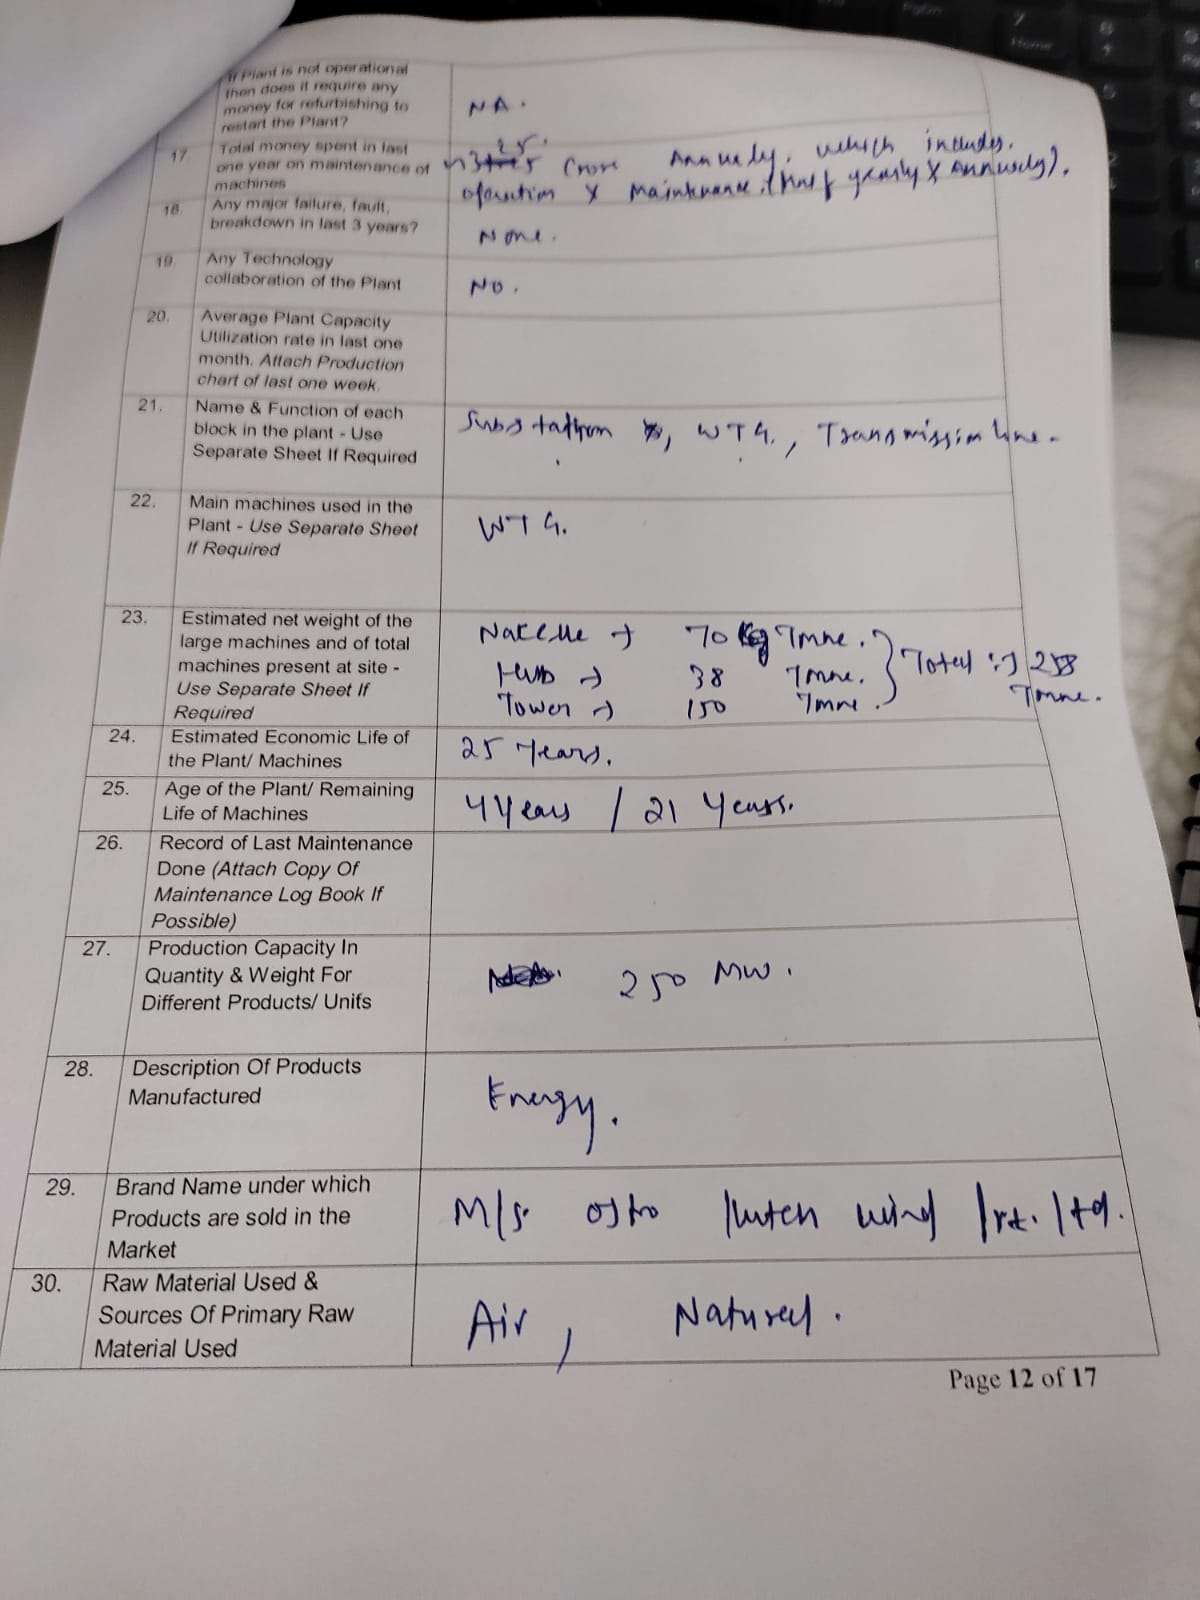 If Plant is not operational
then does it require any
money for refurbishing to
restart the Plant?
NA.
17. Total money spent in last
one year on maintenance of
machines
25.
Crore Annuely, which includes.
operation & maintenance. (half yearly & Annuely).
18. Any major failure, fault,
breakdown in last 3 years?
None.
19. Any Technology
collaboration of the Plant
NO.
20. Average Plant Capacity
Utilization rate in last one
month. Attach Production
chart of last one week.
21. Name & Function of each
block in the plant - Use
Separate Sheet If Required
Substation, WTG., Transmission line.
22. Main machines used in the
Plant - Use Separate Sheet
If Required
WTG.
23. Estimated net weight of the
large machines and of total
machines present at site -
Use Separate Sheet If
Required
Nacelle → 70 Tonne.
Hub → 38 Tonne.
Tower → 150 Tonne.
Total :→ 258
Tonne.
24. Estimated Economic Life of
the Plant/ Machines
25 Years.
25. Age of the Plant/ Remaining
Life of Machines
4 Years / 21 Years.
26. Record of Last Maintenance
Done (Attach Copy Of
Maintenance Log Book If
Possible)
27. Production Capacity In
Quantity & Weight For
Different Products/ Units
250 MW.
28. Description Of Products
Manufactured
Energy.
29. Brand Name under which
Products are sold in the
Market
M/s. Ostro Kutch Wind Pvt. Ltd.
30. Raw Material Used &
Sources Of Primary Raw
Material Used
Air, Natural.
Page 12 of 17